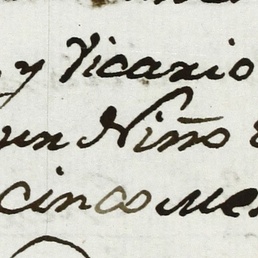 y Vicario
un Niño
cinco me